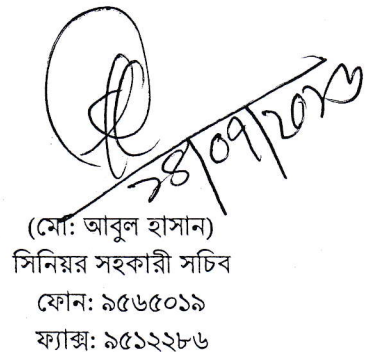 ২৪/০৭/২০১৬
(মো: আবুল হাসান)
সিনিয়র সহকারী সচিব
ফোন: ৯৫৬৫০১৯
ফ্যাক্স: ৯৫১২২৮৬